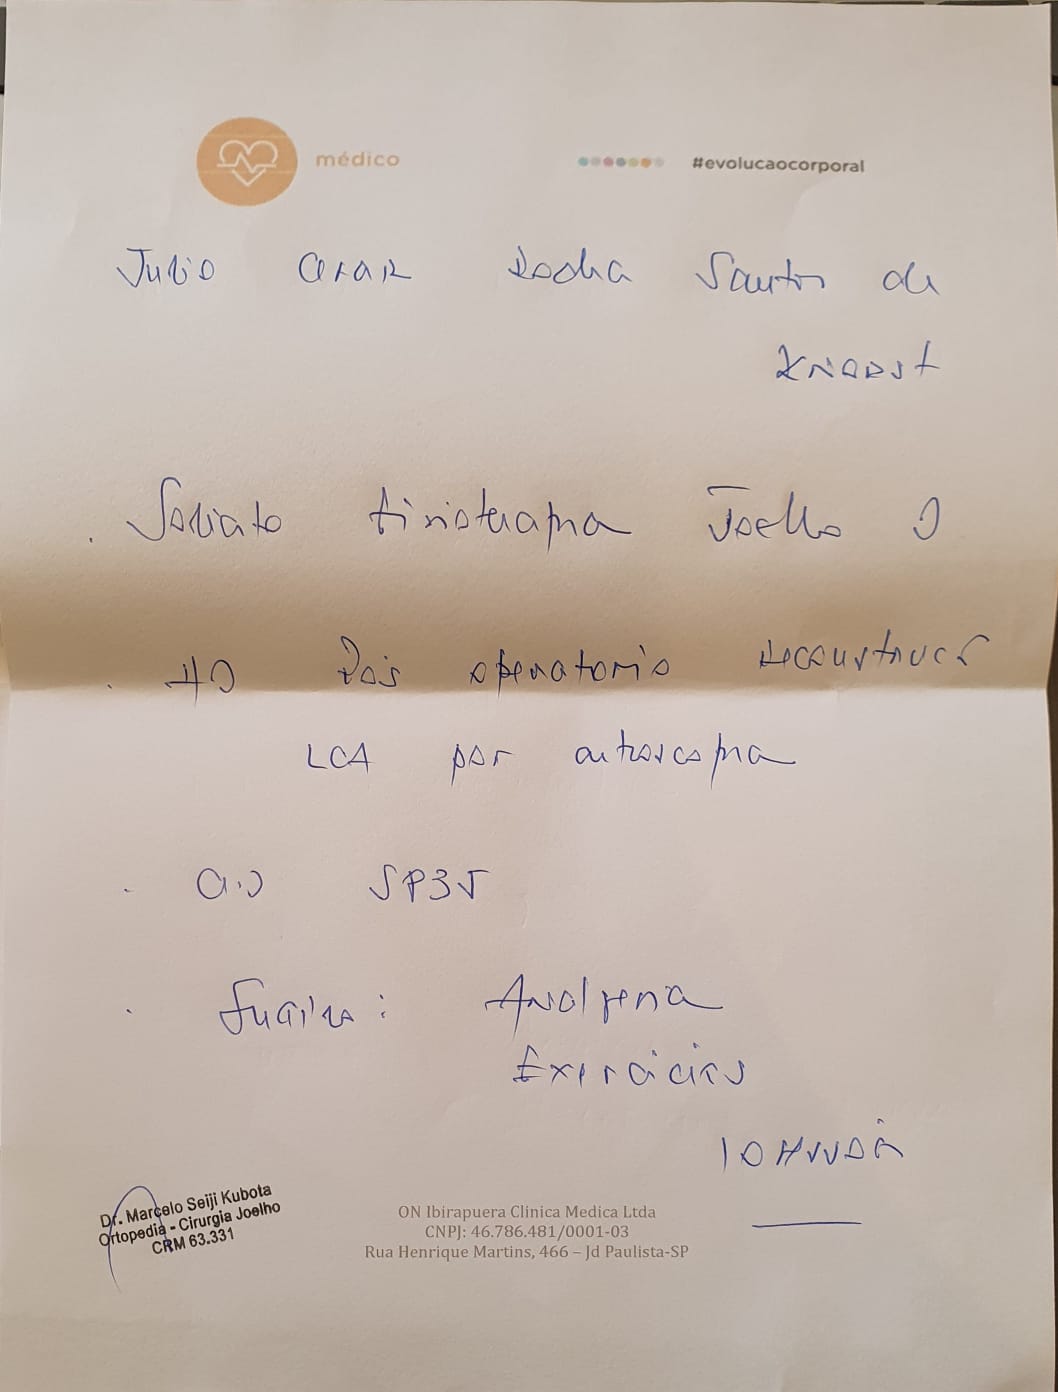 médico #evolucaocorporal
Julio Cesar Rocha Santos de
Knorst
. Solicito fisioterapia Joelho D
. HD Pós operatorio reconstrucs
LCA por artroscopia
. CID
. Analgesia
Exercicios
10
Dr. Marcelo Seiji Kubota
Ortopedia - Cirurgia Joelho
CRM 63.331
ON Ibirapuera Clinica Medica Ltda
CNPJ: 46.786.481/0001-03
Rua Henrique Martins, 466 – Jd Paulista-SP